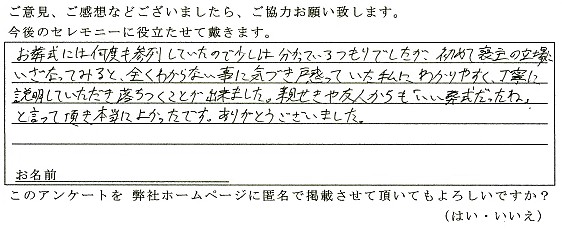 ご意見、ご感想などございましたら、ご協力お願い致します。
今後のセレモニーに役立たせて戴きます。
お葬式には何度も参列していたので少しは分かっているつもりでしたが、初めて喪主の立場に
いざなってみると、全くわからない事に気づき戸惑っていた私に、わかりやすく、丁寧に
説明していただき落ちつくことが出来ました。親せきや友人からも「いい葬式だったね」
と言って頂き本当によかったです。ありがとうございました。
お名前
このアンケートを 弊社ホームページに匿名で掲載させて頂いてもよろしいですか？
（はい・いいえ）